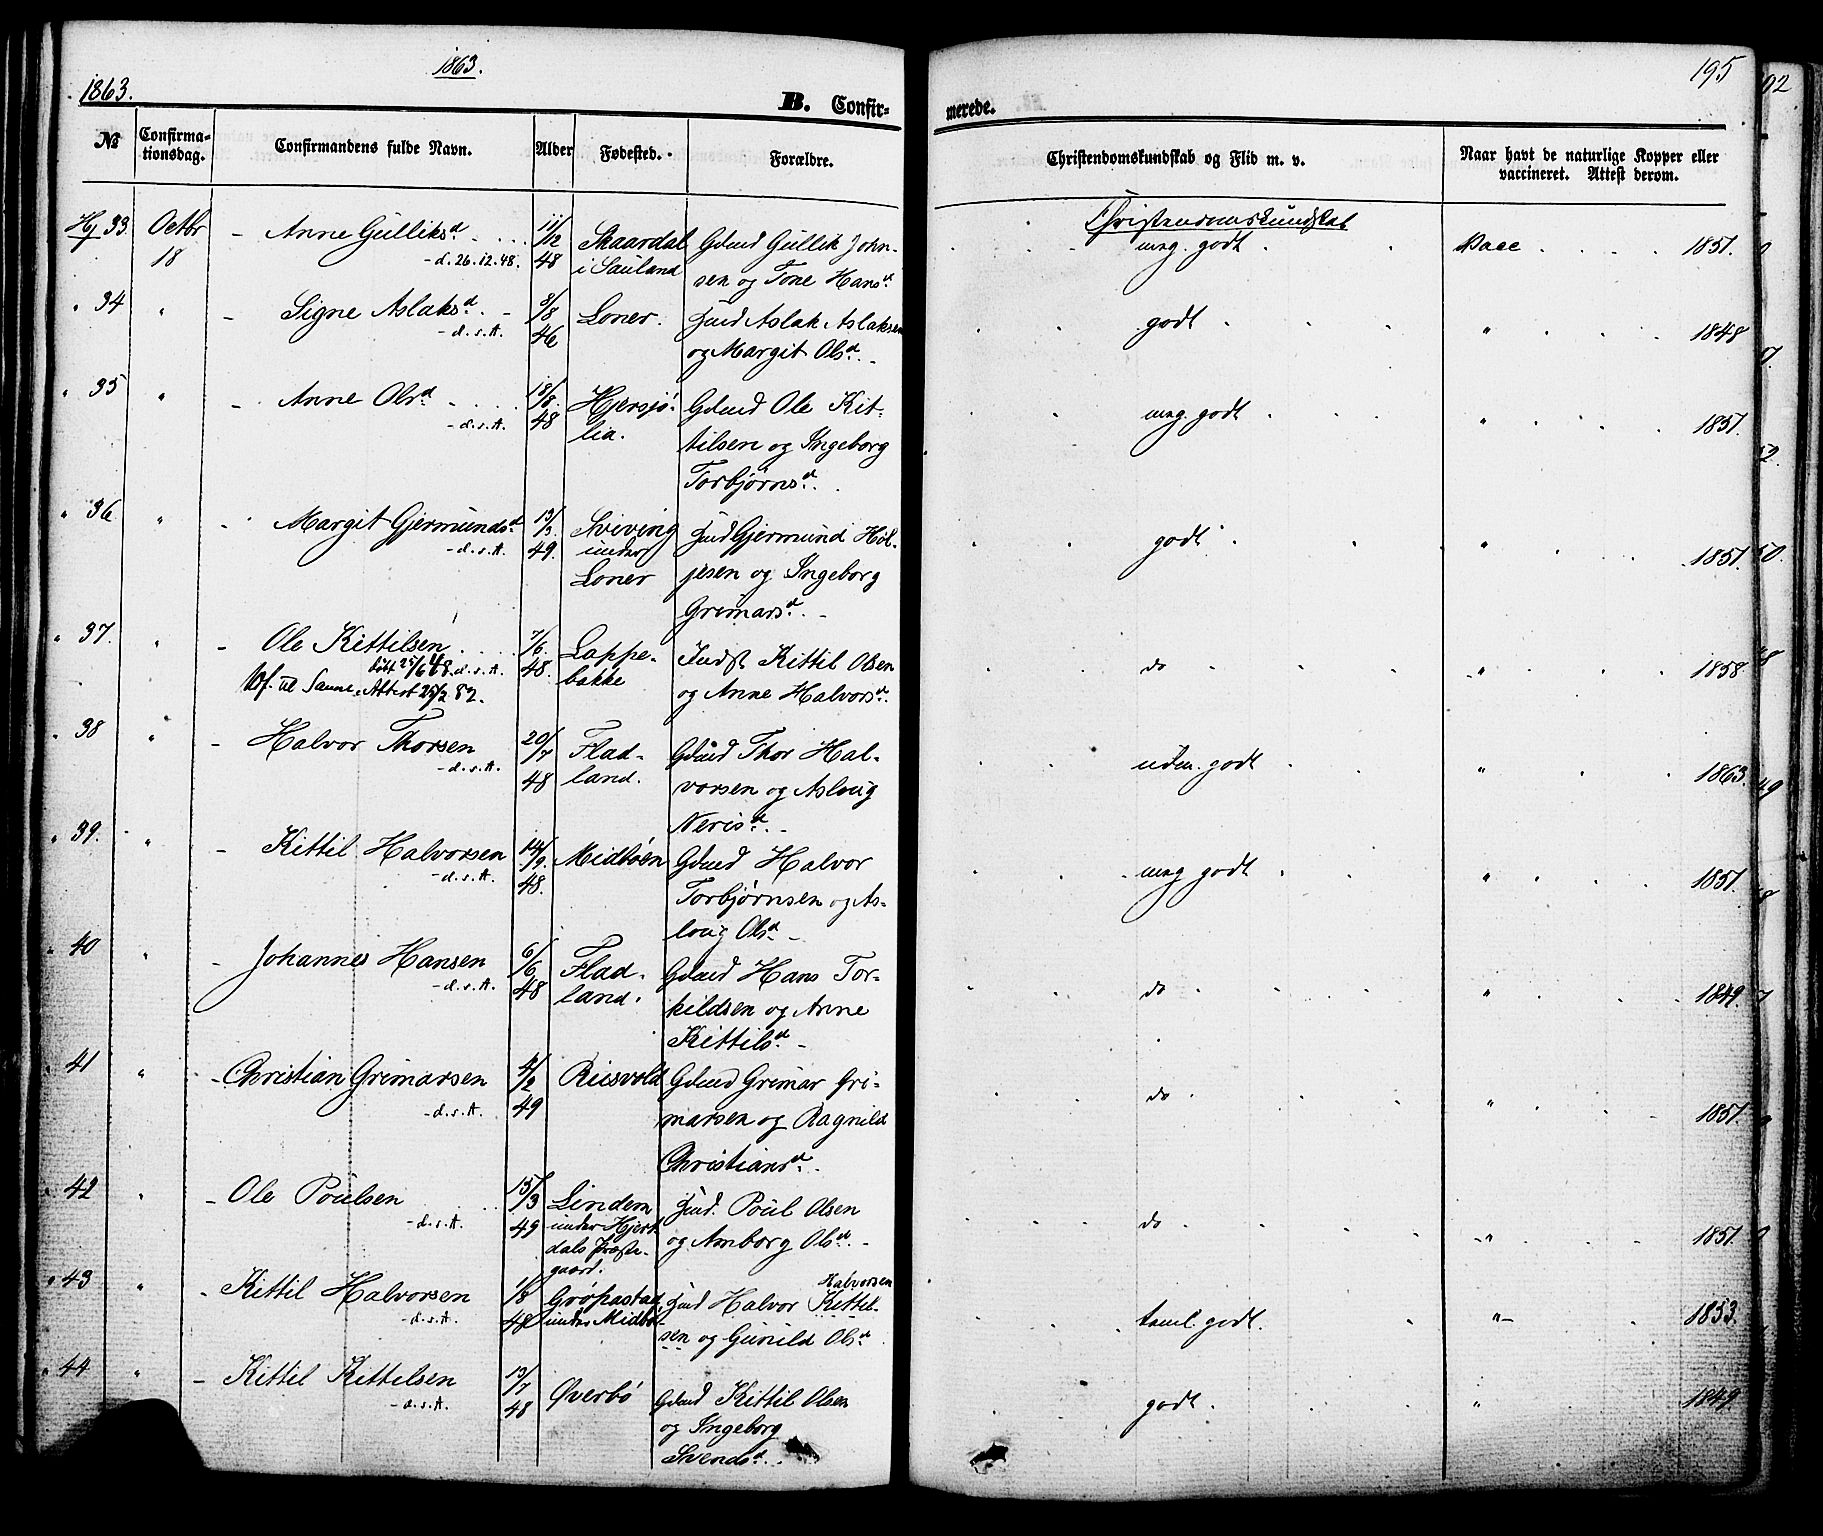 1863.
1863.
195
B. Confir-
merede.
№
Confirma-
tionsdag.
Confirmandens fulde Navn.
Alder
Fødested.
Forældre.
Christendomskundskab og Flid m. v.
Naar havt de naturlige Kopper eller
vaccineret. Attest derom.
Christendomskundskab
Hj 33 Octbr 18 - Anne Gulliksd. - d. 26.12.48. 11/12 48 Skaardal
i Sauland
Gdmd Gullik John-
sen og Tone Hansd.
meg. godt Vacc 1851.
" 34 " - Signe Aslaksd. - d.s.A. 8/8 46 Loner.
Hmd Aslak Aslaksen
og Margit Olsd. -
godt " 1848
" 35 " - Anne Olsd - d.s.A. 18/8. 48 Hjersjö-
lia.
Gdmd Ole Kit-
tilsen og Ingeborg
Torbjörnsd.
meg. godt " 1851.
" 36 " - Margit Gjermundsd. - d.s.A. 13/3. 49. Sviving
under
Loner
Hmd Gjermund Höl-
jesen og Ingeborg
Grimarsd. -
godt " 1851.
" 37. " - Ole Kittilsen - d.s.A.
döbt 25/6 48.
Uf. til Saune. Attest 25/2 82.
7/6. 48. Lappe-
bakke
Indst Kittil Olsen
og Anne Halvorsd.
do " 1858.
" 38 " - Halvor Thorsen - d.s.A. 20/7 48 Flad-
land.
Gdmd Thor Hal-
vorsen og Asloug
Nerisd. -
udm. godt " 1863.
" 39. " - Kittil Halvorsen - d.s.A. 14/9. 48. Midböen
Gdmd Halvor
Torbjörnsen og As-
loug Olsd. -
meg godt " 1851.
" 40 " - Johannes Hansen - d.s.A. 6/6 48 Flad-
land.
Gdmd Hans Tor-
kildsen og Anne
Kittilsd. -
do " 1849.
41 " - Christian Grimarsen - d.s.A. 4/2 49 Riisvold
Gdmd Grimar Gri-
marsen og Ragnild
Christiansd. -
do " 1851.
42 " - Ole Poulsen - d.s.A. 15/3 49 Lindem
under Hjert-
dals Præste-
gaard.
Hmd. Poul Olsen
og Amborg Olsd. -
do " 1851.
" 43 " - Kittil Halvorsen - d.s.A. 1/8 48 Gröpastad
under Midbö
Halvorsen
Hmd Halvor Kittil-
sen og Gunild Olsd
taml. godt. " 1853.
" 44 " - Kittil Kittelsen - d.s.A. 13/7 48 Øverbö
Gdmd Kittil Olsen
og Ingeborg
Svendsd. . .
godt. " 1849.